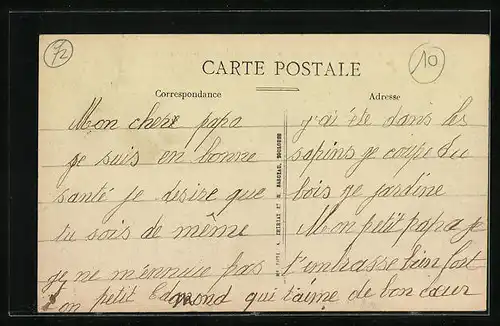 92
10
CARTE POSTALE
Correspondance
Adresse
Mon cher papa
je suis en bonne
santé je desire que
tu sois de même
je ne m'ennuie pas
j'ai été dans les
sapins je coupe du
bois je jardine
Mon petit papa je
t'embrasse bien fort
ton petit Edmond qui t'aime de bon cœur